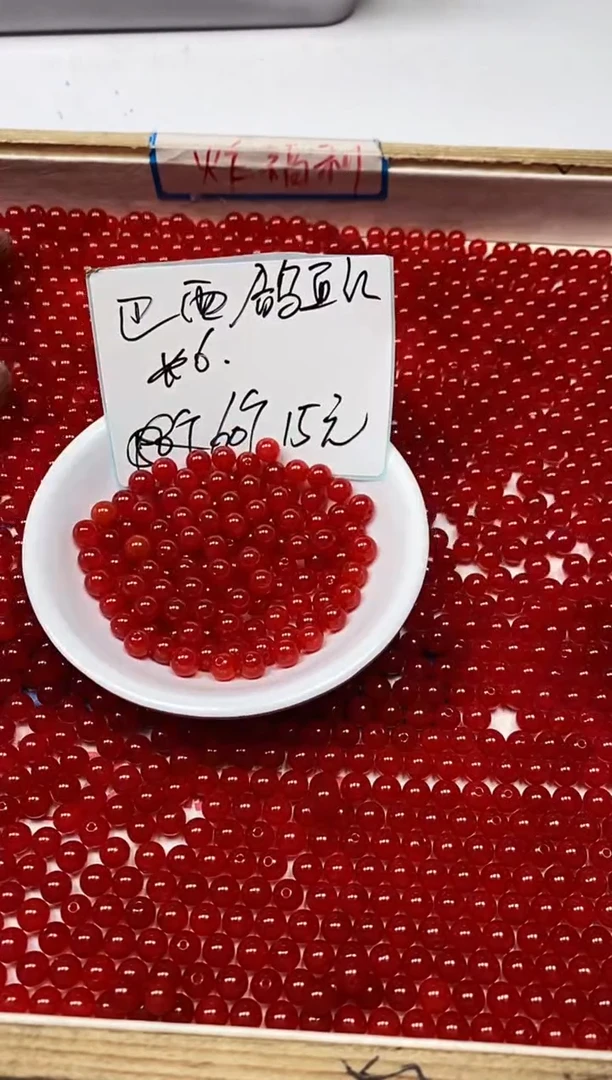 炸福利
巴西鸽血红
*6.
60个 15元